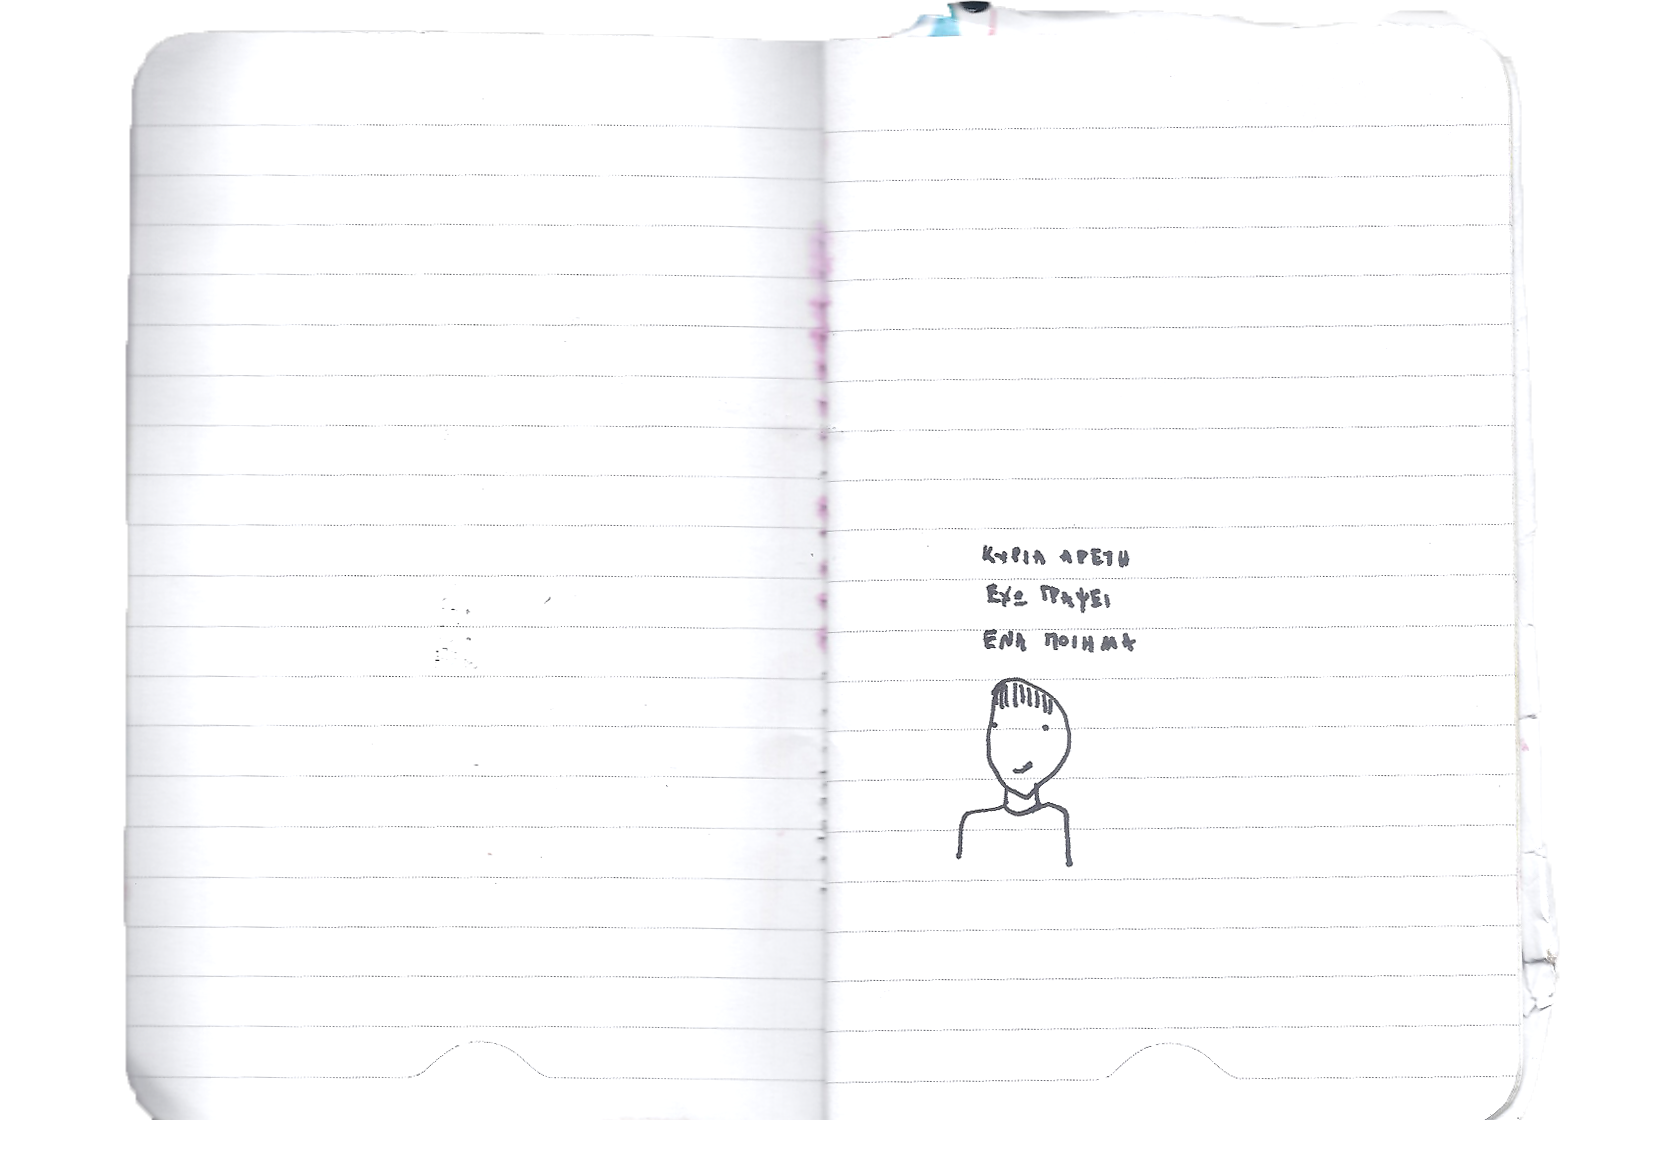 ΚΥΡΙΑ ΑΡΕΤΗ
ΕΧΩ ΓΡΑΨΕΙ
ΕΝΑ ΠΟΙΗΜΑ